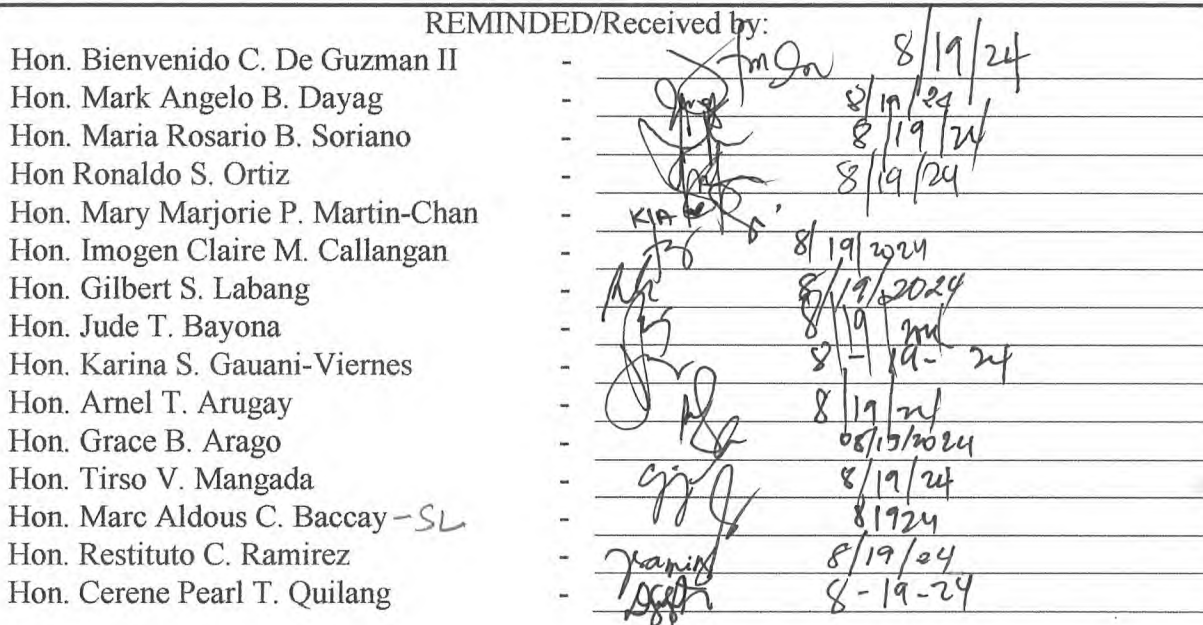 REMINDED/Received by:
Hon. Bienvenido C. De Guzman II - 8/19/24
Hon. Mark Angelo B. Dayag - 8/19/24
Hon. Maria Rosario B. Soriano - 8/19/24
Hon Ronaldo S. Ortiz - 8/19/24
Hon. Mary Marjorie P. Martin-Chan -
Hon. Imogen Claire M. Callangan - 8/19/2024
Hon. Gilbert S. Labang - 8/19/2024
Hon. Jude T. Bayona - 8/19
Hon. Karina S. Gauani-Viernes - 8-19-24
Hon. Arnel T. Arugay - 8/19/24
Hon. Grace B. Arago - 08/19/2024
Hon. Tirso V. Mangada - 8/19/24
Hon. Marc Aldous C. Baccay - SL - 81924
Hon. Restituto C. Ramirez - 8/19/24
Hon. Cerene Pearl T. Quilang - 8-19-24